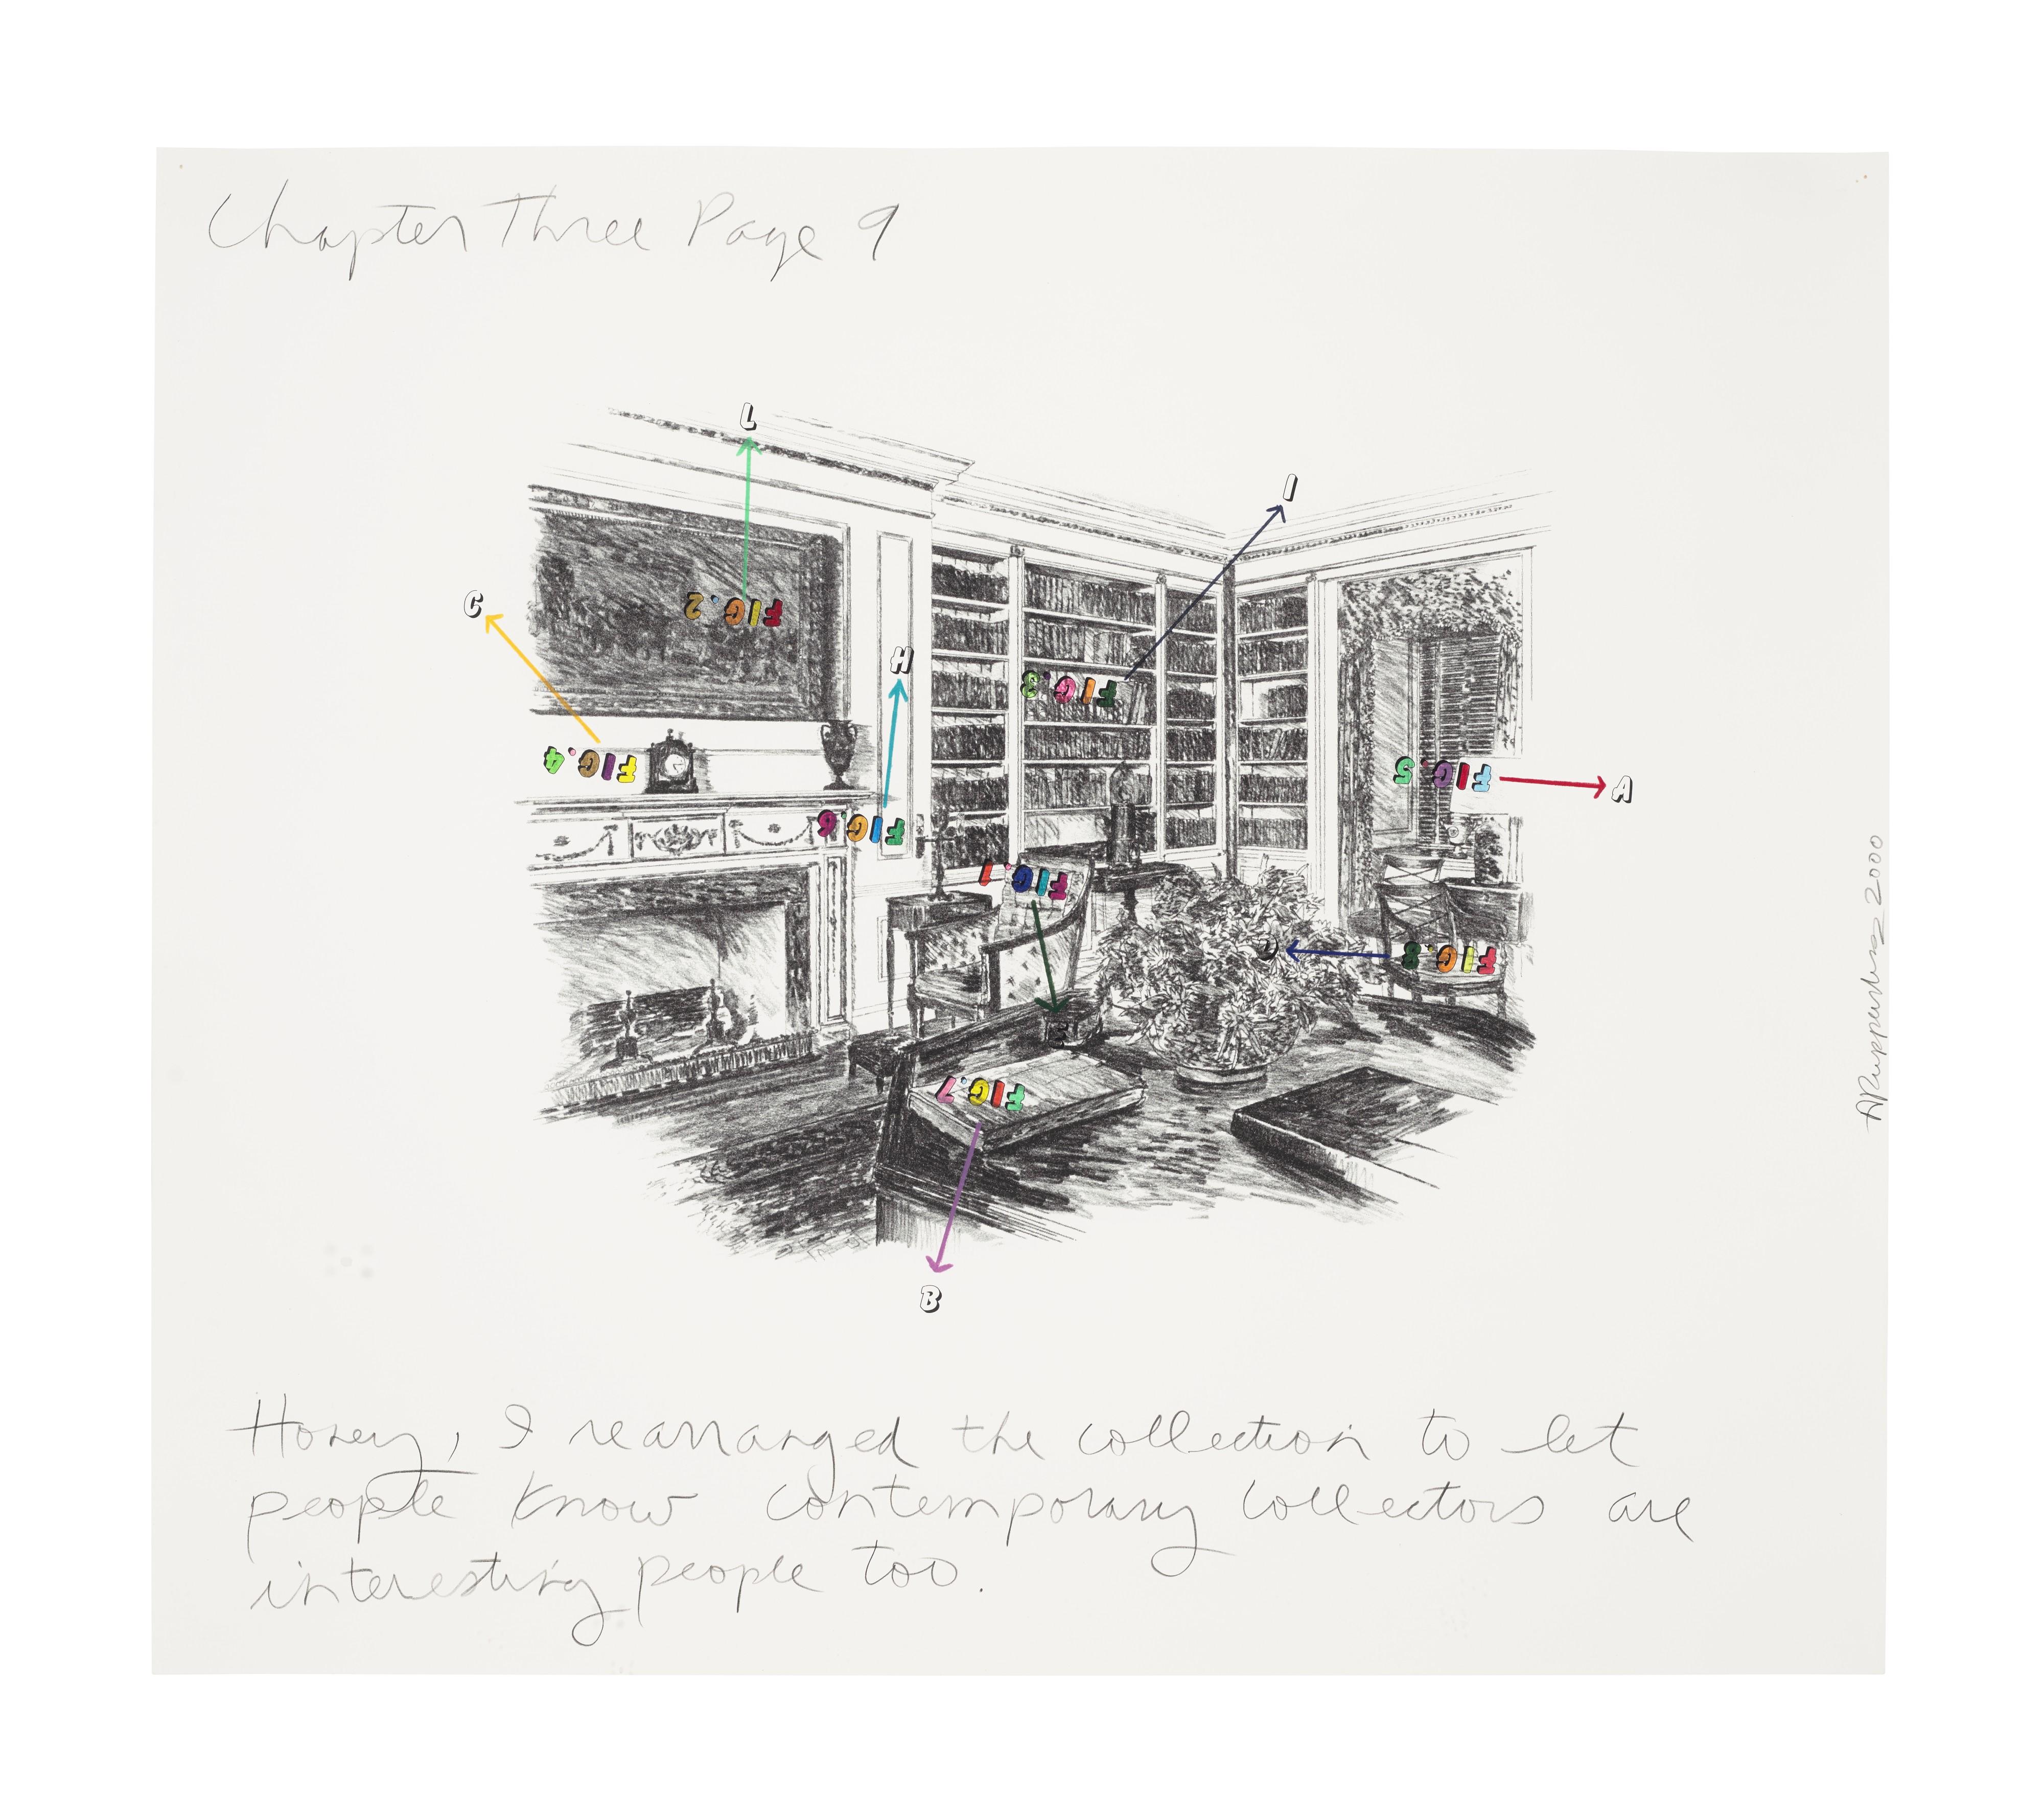 Chapter Three Page 9
L
I
C
FIG.2
H
FIG.3
FIG.4
FIG.5
A
FIG.6
FIG.1
FIG.8
FIG.7
B
2000
Honey, I rearranged the collection to let
people know contemporary collectors are
interesting people too.